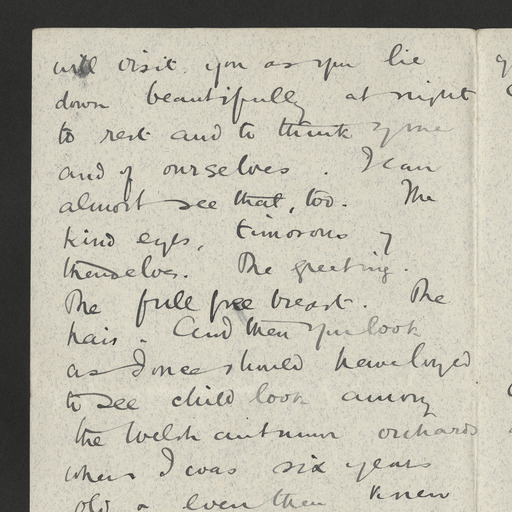 will visit you as you lie
down beautifully at night
to rest and to think of me
and of ourselves. I can
almost see that, too. The
kind eyes, timorous of
themselves. The greeting.
The full free breast. The
hair. And then you look
as I once should have loved
to see child look among
the Welsh autumn orchards
when I was six years
old & even then knew